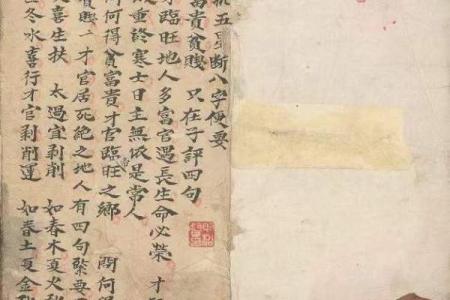 五星断八字便要
富貴貧賤 只在子評四句
才臨旺地人多富官遇長生命必榮 才
重終寒士日主無依是常人
何得貧富貴才官臨旺之鄉 問何
賤才官居死絶之地人有四句緊要
喜生扶 太過宜剥削 如春木夏火
冬水喜行才官剥削運 如春土夏金